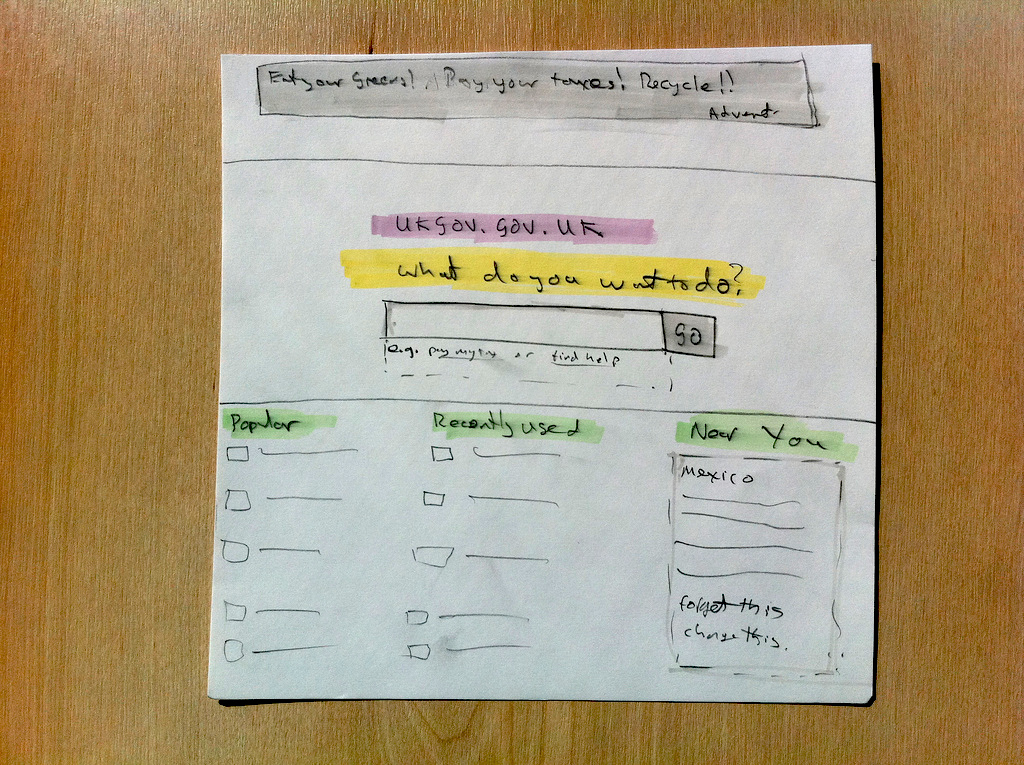 Eat your Greens! Pay your taxes! Recycle!!
Advert
UKGOV.GOV.UK
What do you want to do?
GO
e.g. pay my tax or find help
Popular
Recently used
Near You
Mexico
forget this
change this.